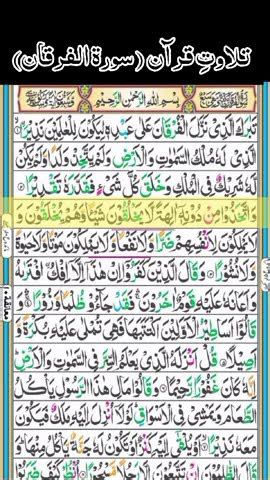 تلاوتِ قرآن (سورۃ الفرقان)
بِسْمِ اللهِ الرَّحْمٰنِ الرَّحِيْمِ
تَبٰرَكَ الَّذِيْ نَزَّلَ الْفُرْقَانَ عَلٰى عَبْدِهٖ لِيَكُوْنَ لِلْعٰلَمِيْنَ نَذِيْرًا
الَّذِيْ لَهٗ مُلْكُ السَّمٰوٰتِ وَالْاَرْضِ وَلَمْ يَتَّخِذْ وَلَدًا وَّلَمْ يَكُنْ
لَّهٗ شَرِيْكٌ فِي الْمُلْكِ وَخَلَقَ كُلَّ شَيْءٍ فَقَدَّرَهٗ تَقْدِيْرًا
وَاتَّخَذُوْا مِنْ دُوْنِهٖٓ اٰلِهَةً لَّا يَخْلُقُوْنَ شَيْـًٔا وَّهُمْ يُخْلَقُوْنَ وَ
لَا يَمْلِكُوْنَ لِاَنْفُسِهِمْ ضَرًّا وَّلَا نَفْعًا وَّلَا يَمْلِكُوْنَ مَوْتًا وَّلَا حَيٰوةً
وَّلَا نُشُوْرًا وَقَالَ الَّذِيْنَ كَفَرُوْٓا اِنْ هٰذَآ اِلَّآ اِفْكُ افْتَرٰىهُ
وَاَعَانَهٗ عَلَيْهِ قَوْمٌ اٰخَرُوْنَ فَقَدْ جَآءُوْ ظُلْمًا وَّزُوْرًا وَ
قَالُوْٓا اَسَاطِيْرُ الْاَوَّلِيْنَ اكْتَتَبَهَا فَهِيَ تُمْلٰى عَلَيْهِ بُكْرَةً وَّ
اَصِيْلًا قُلْ اَنْزَلَهُ الَّذِيْ يَعْلَمُ السِّرَّ فِي السَّمٰوٰتِ وَالْاَرْضِ
اِنَّهٗ كَانَ غَفُوْرًا رَّحِيْمًا وَقَالُوْا مَالِ هٰذَا الرَّسُوْلِ يَاْكُلُ
الطَّعَامَ وَيَمْشِيْ فِي الْاَسْوَاقِ لَوْلَآ اُنْزِلَ اِلَيْهِ مَلَكٌ فَيَكُوْنَ
مَعَهٗ نَذِيْرًا اَوْ يُلْقٰٓى اِلَيْهِ كَنْزٌ اَوْ تَكُوْنُ لَهٗ جَنَّةٌ يَّاْكُلُ مِنْهَا وَ